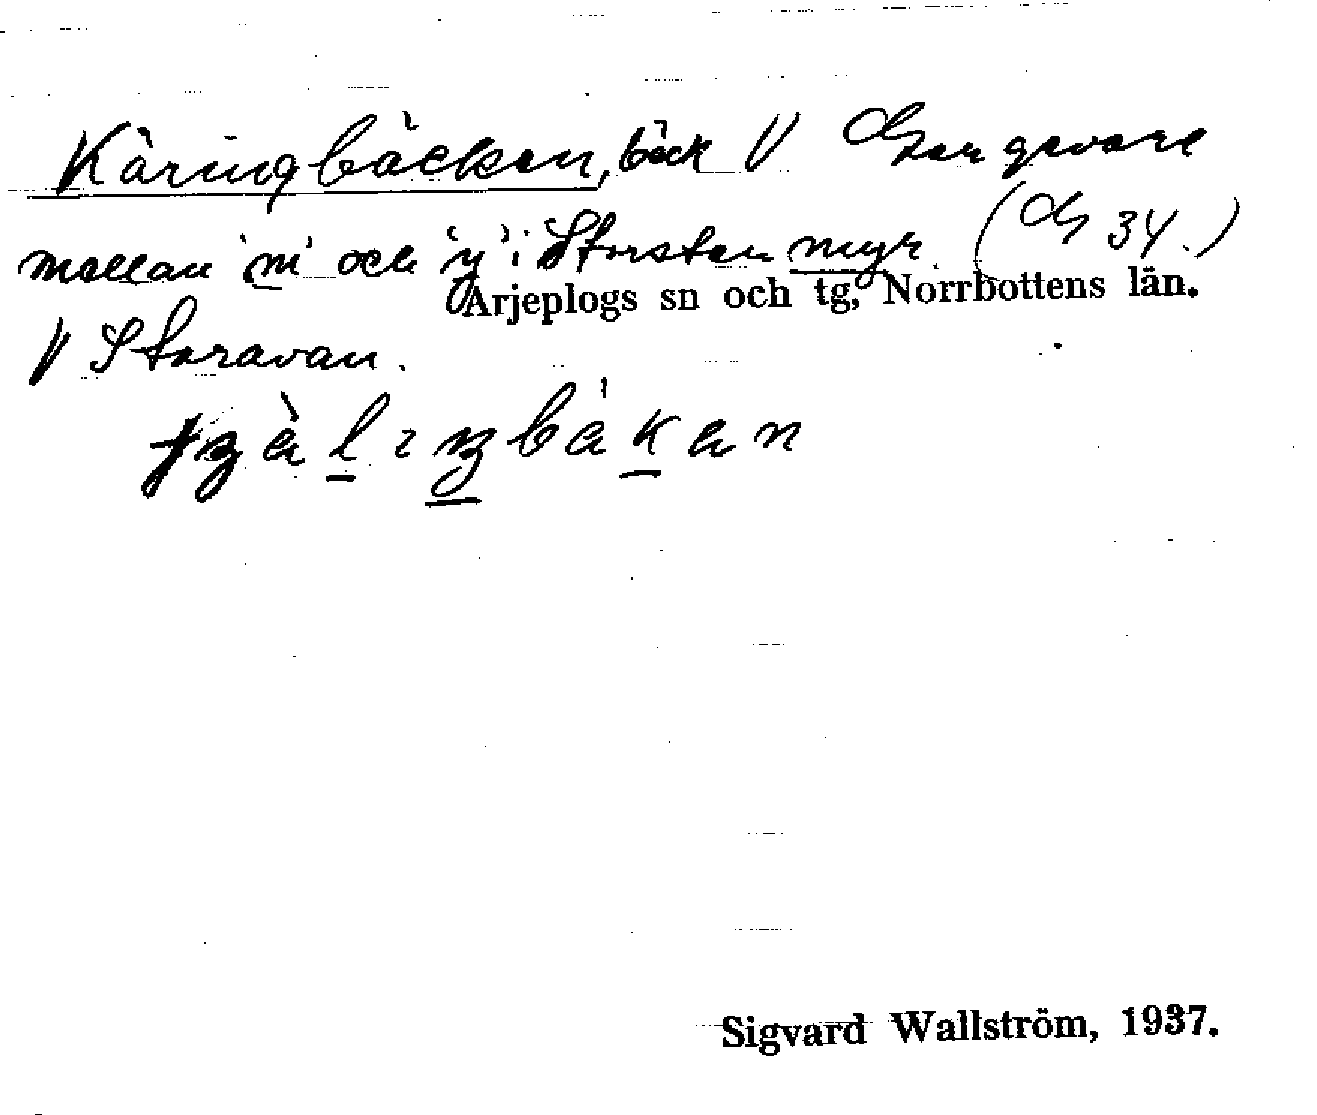 Käringbäcken, bäck V
mellan 'm' och 'y' i Storstenmyr.
Arjeplogs sn och tg, Norrbottens län.
V Storavan.
Sigvard Wallström, 1937.